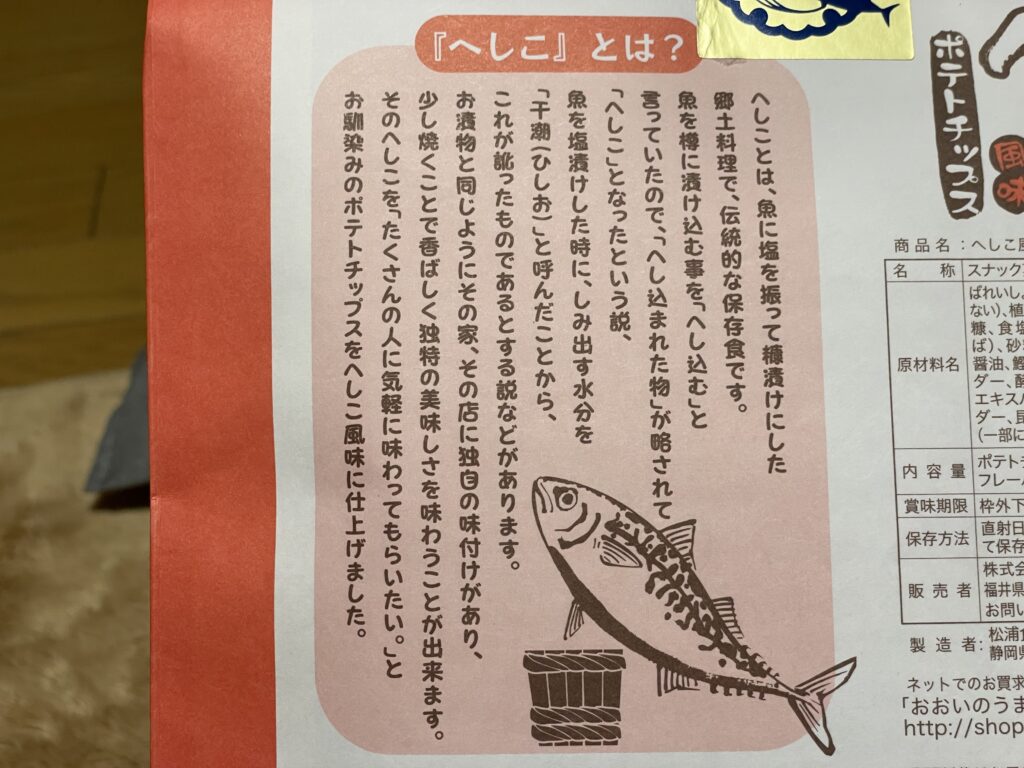 『へしこ』とは？
へしことは、魚に塩を振って糠漬けにした
郷土料理で、伝統的な保存食です。
魚を樽に漬け込む事を「へし込む」と
言っていたので、「へし込まれた物」が略されて
「へしこ」となったという説、
魚を塩漬けした時に、しみ出す水分を
「干潮(ひしお)」と呼んだことから、
これが訛ったものであるとする説などがあります。
お漬物と同じようにその家、その店に独自の味付けがあり、
少し焼くことで香ばしく独特の美味しさを味わうことが出来ます。
そのへしこを「たくさんの人に気軽に味わってもらいたい。」と
お馴染みのポテトチップスをへしこ風味に仕上げました。
風味
ポテトチップス
商品名：へしこ風
名称 スナック
原材料名 ばれいしょ
ない)、植
糠、食塩
ば)、砂
醤油、鰹
ダー、酵
エキスパ
ダー、昆
(一部に
内容量 ポテトチ
フレーム
賞味期限 枠外下
保存方法 直射日
て保存
販売者 株式会
福井県
お問い
製造者：松浦
静岡県
ネットでのお買求
「おおいのうま
http://shop